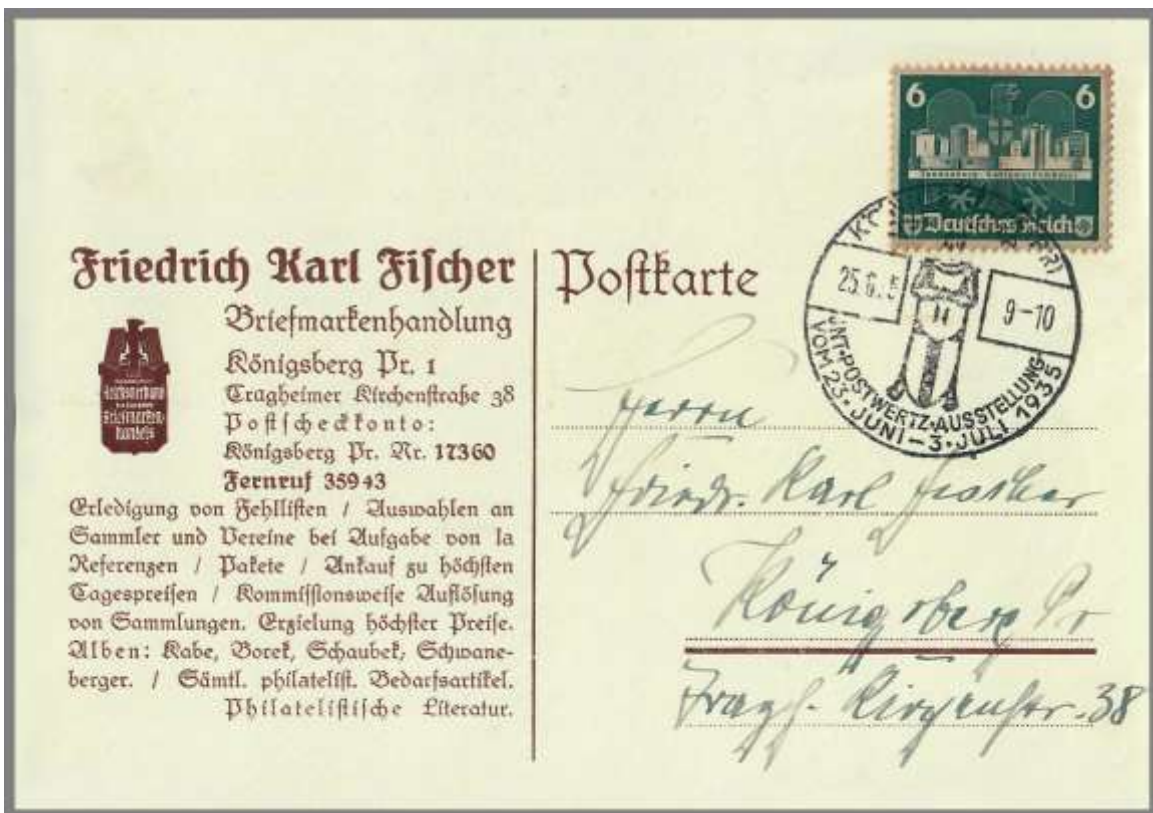 Friedrich Karl Fischer
Briefmarkenhandlung
Königsberg Pr. 1
Tragheimer Kirchenstraße 38
Postscheckkonto:
Königsberg Pr. Nr. 17360
Fernruf 35943
Erledigung von Fehllisten / Auswahlen an
Sammler und Vereine bei Aufgabe von Ia
Referenzen / Pakete / Ankauf zu höchsten
Tagespreisen / Kommissionsweise Auflösung
von Sammlungen. Erzielung höchster Preise.
Alben: Kabe, Borek, Schaubek, Schwane-
berger. / Sämtl. philatelist. Bedarfsartikel.
Philatelistische Literatur.
Reichsverband
Briefmarken-
handels
Postkarte
6 6
Deutsches Reich
25.6.
9-10
INT·POSTWERTZ·AUSSTELLUNG
VOM 23. JUNI – 3. JULI 1935
Herrn
Friedr. Karl Fischer
Königsberg Pr
Tragh. Kirchenstr. 38